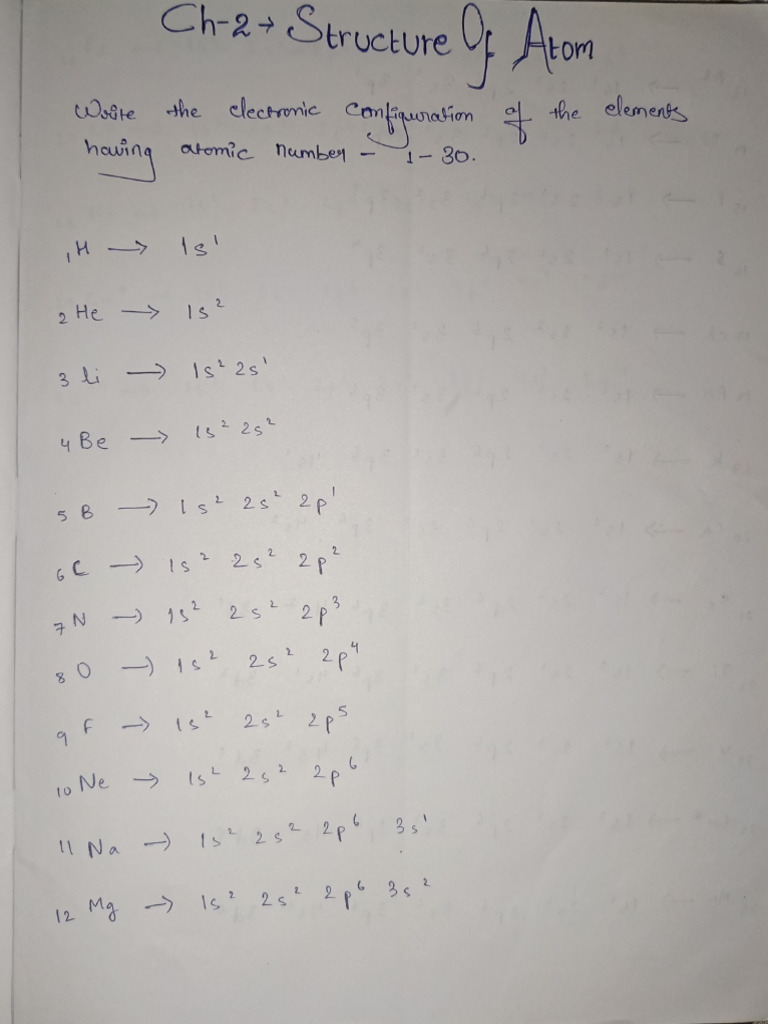 Ch-2 → Structure Of Atom
Write the electronic configuration of the elements
having atomic number - 1-30.
₁H → 1s¹
₂He → 1s²
₃li → 1s² 2s¹
₄Be → 1s² 2s²
₅B → 1s² 2s² 2p¹
₆C → 1s² 2s² 2p²
₇N → 1s² 2s² 2p³
₈O → 1s² 2s² 2p⁴
₉F → 1s² 2s² 2p⁵
₁₀Ne → 1s² 2s² 2p⁶
₁₁Na → 1s² 2s² 2p⁶ 3s¹
₁₂Mg → 1s² 2s² 2p⁶ 3s²